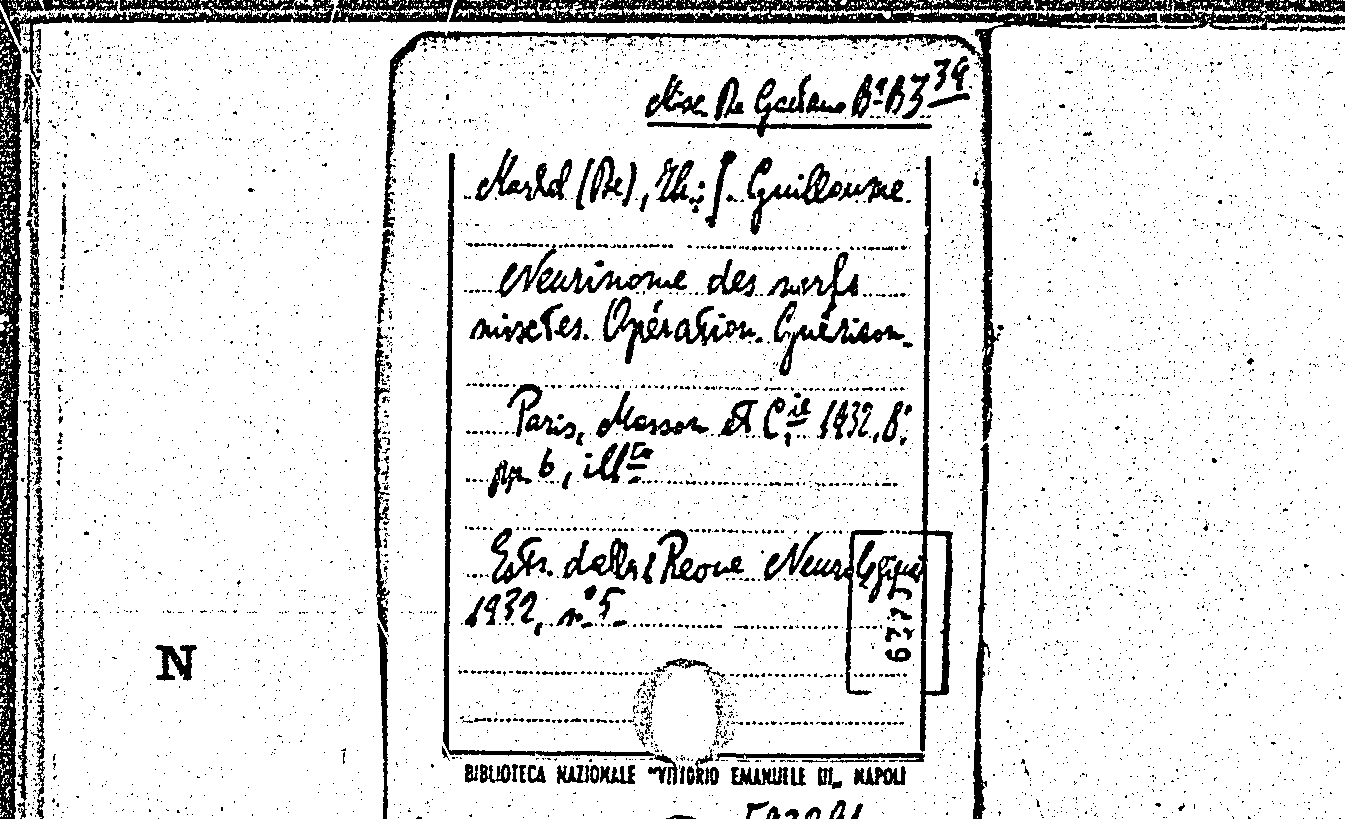 Misc. De Gaetano B.ª B3 39
Martel (De), Th.: J. Guillaume
Neurinome des nerfs
mixtes. Opération. Guérison.
Paris, Masson et C.ie 1932. 8.º
pp. 6, ill.te
Estr. dalla: Revue Neurologique
1932, n.º 5
N
BIBLIOTECA NAZIONALE "VITTORIO EMANUELE III" NAPOLI